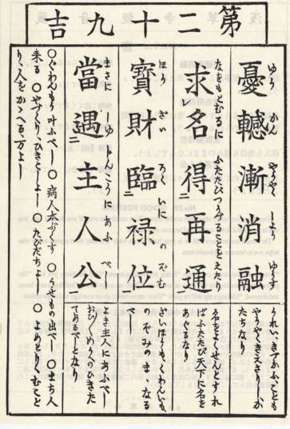 第二十九吉
憂轗漸消融
ゆう やうやく しよう ゆうす
うれいきづかふことも
やうやくきえさり
求レ名得二再通一
なをもとむるに ふたたびつうずることをえたり
名をよくせんとすれ
ばふたたび天下に名を
あぐるなり
寶財臨二禄位一
ほう ざい ろくいに のぞむ
ざいほうもくわんいも
のぞみのまゝなる
べし
當レ遇二主人公一
まさに しゆじんこうにあふべし
よき主人にあふべし
めうへのひきた
てあるべしとなり
○ぐわんもう叶ふべし ○病人本ぷくす ○うせもの出べし ○まち人
来る ○やづくり、ひきこしよし ○たびだちよし ○よめとり、むこと
り、人をかゝへる、万よし